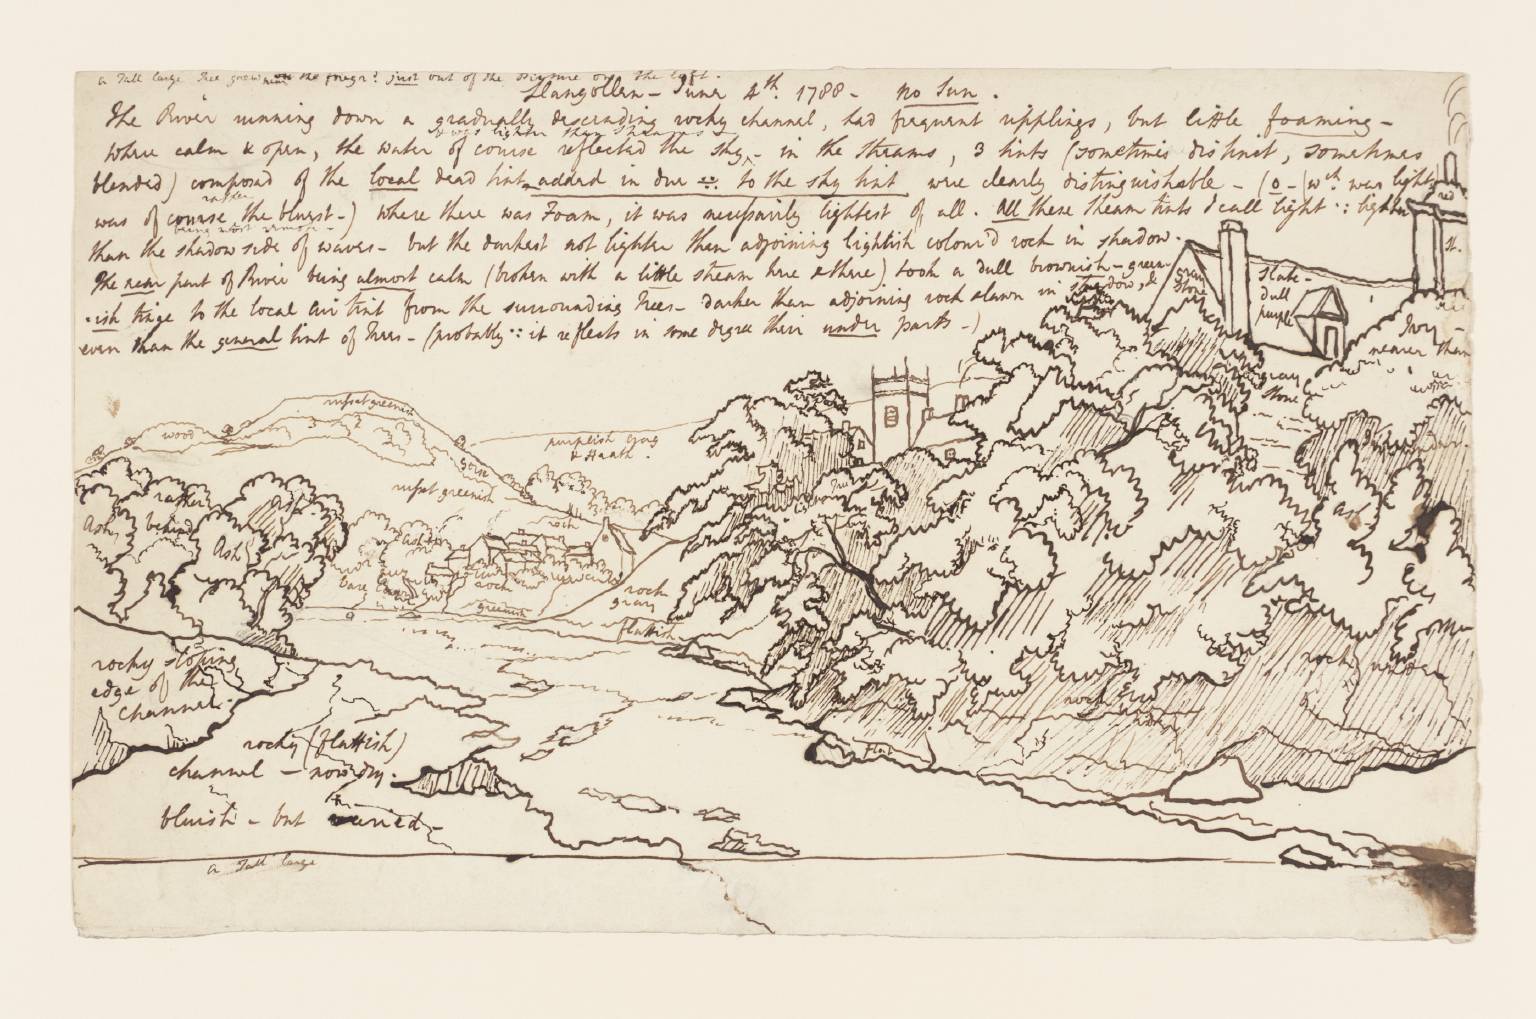 a Tall large Tree grew near on the foregr.d just out of the Picture on the left.
Llangollen - June 4th. 1788 - no Sun.
The River running down a gradually descending rocky channel, had frequent ripplings, but little foaming -
& was lighter than
where calm & open, the water of course reflected the sky - in the streams, 3 tints (sometimes distinct, sometimes
blended) composed of the local dead tint added in due to the sky tint were clearly distinguishable - (wch. was light
rather
was of course the bluest -) where there was Foam, it was necessarily lightest of all. All these steam tints I call light lighter
being most remote -
than the shadow side of waves - but the darkest not lighter than adjoining lightish colour'd rock in shadow.
The near part of River being almost calm (broken with a little steam here & there) took a dull brownish - green-
-ish tinge to the local Air tint from the surrounding Trees - darker than adjoining rock & lawn in shadow, &
even than the general tint of Trees - (probably it reflects in some degree their under parts -)
gray
stone
slate -
dull
purple
st.
red
Ivy -
nearer than
gray
stone
russet greenish
wood
purplish Crag
& Heath.
gorse
russet greenish
rather
behind
Ash
Ash
Ash
ash
rock
rock
rock
gray
greenish
flattish
ash
under
rocky sloping
edge of the
channel.
rock under
rock
flat
rocky (flattish)
channel - now dry.
bluish - but varied -
a Tall large